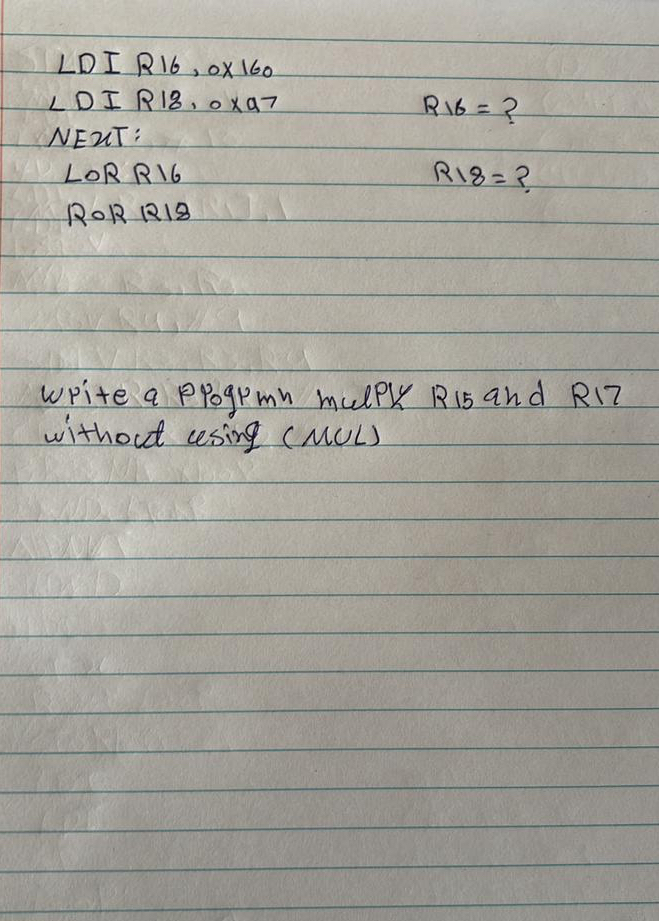 LDI R16, 0x160
LDI R18, 0xa7
R16 = ?
NEXT:
LOR R16
R18 = ?
ROR R18
write a program mulPly R15 and R17
without using (MUL)